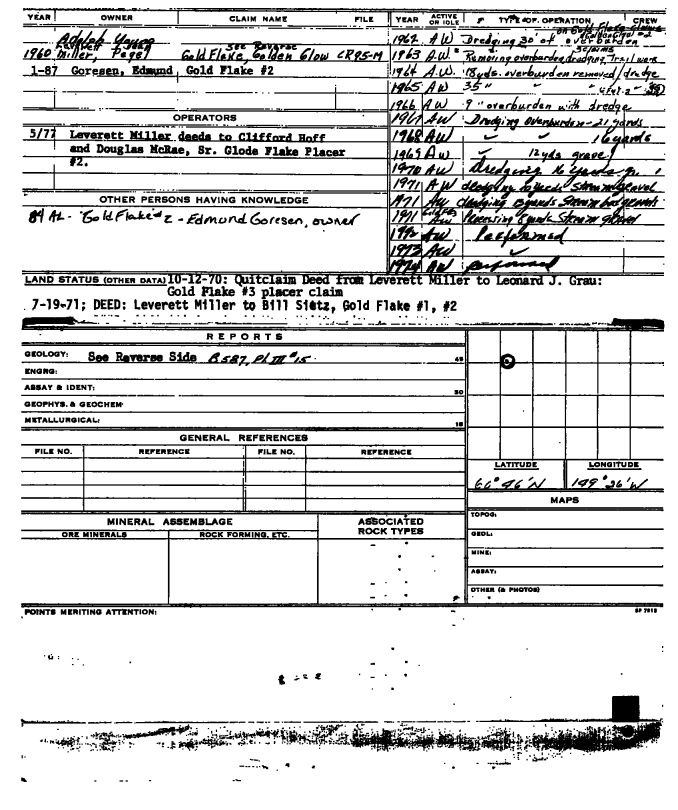 YEAR OWNER CLAIM NAME FILE
Adolph Young
Leverett
1960 Miller, Pagel Gold Flake, Golden Glow CR95-M
See Reverse
1-87 Goresen, Edmund Gold Flake #2
OPERATORS
5/77 Leverett Miller deeds to Clifford Hoff
and Douglas McRae, Sr. Glode Flake Placer
#2.
OTHER PERSONS HAVING KNOWLEDGE
84 AL - "Gold Flake" 2 - Edmund Goresen, owner
YEAR ACTIVE OR IDLE TYPE OF OPERATION CREW
on Gold Flake claims
1962 AW Dredging 30' of overburden
5 claims
1963 A.W. Removing overburden, dredging Trail work
1964 A.W. 18 yds. overburden removed / dredge
1965 AW 35 " " "
1966 AW 9 " overburden with dredge
1967 AW Dredging Overburden - 21 yards
1968 AW 16 yards
1969 AW 12 yds gravel
1970 AW Dredging 16 yards
1971 AW dredging yards Stream gravel
1971 AW dredging 8 yards Stream
1971 AW yards Stream gravel
1972 AW Performed
1973 AW
1974 AW performed
LAND STATUS (OTHER DATA) 10-12-70: Quitclaim Deed from Leverett Miller to Leonard J. Grau:
Gold Flake #3 placer claim
7-19-71; DEED: Leverett Miller to Bill Sietz, Gold Flake #1, #2
REPORTS
GEOLOGY: See Reverse Side B 587, Pl III #15 45
ENGRG:
ASSAY & IDENT: 30
GEOPHYS. & GEOCHEM:
METALLURGICAL: 15
GENERAL REFERENCES
FILE NO. REFERENCE FILE NO. REFERENCE
LATITUDE LONGITUDE
66° 46' N 149° 26' W
MAPS
TOPOG:
GEOL:
MINE:
ASSAY:
OTHER (& PHOTOS)
MINERAL ASSEMBLAGE ASSOCIATED ROCK TYPES
ORE MINERALS ROCK FORMING, ETC.
POINTS MERITING ATTENTION: